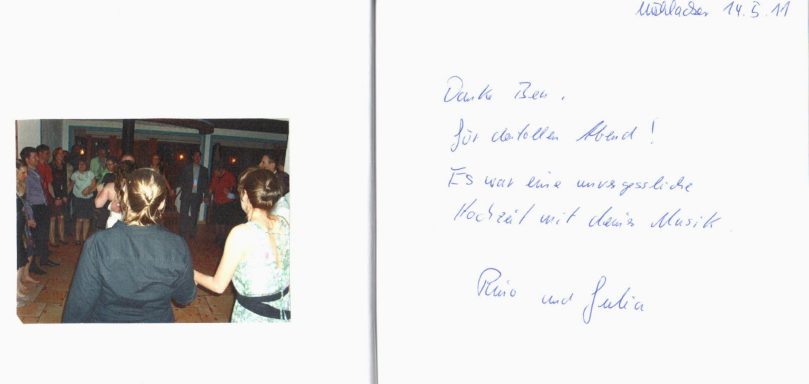 Mühlacker 14.5.11
Danke Ben,
für den tollen Abend!
Es war eine unvergessliche
Hochzeit mit deiner Musik.
und Julia